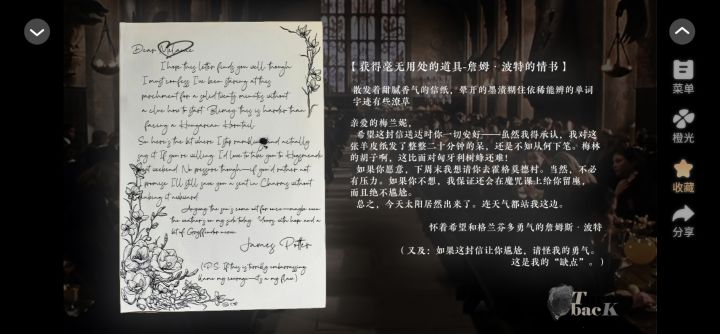 Dear Melanie
I hope this letter finds you well though
I must confess I've been staring at this
parchment for a solid twenty minutes without
a clue how to start. Blimey this is harder than
facing a Hungarian Horntail.
So here's the bit where I stop rambling and actually
say it. If you're willing I'd love to take you to Hogsmeade
next weekend. No pressure though—if you'd rather not
I promise I'll still save you a seat in Charms without
making it awkward.
Anyway the sun's come out for once—maybe even
the weather's on my side today. Yours with hope and a
bit of Gryffindor nerve
James Potter
(P.S. If this is terribly embarrassing
blame my courage—it's a my flaw.)
【获得毫无用处的道具-詹姆·波特的情书】
散发着甜腻香气的信纸，晕开的墨渍糊住依稀能辨的单词
字迹有些潦草
亲爱的梅兰妮，
希望这封信送达时你一切安好——虽然我得承认，我对这
张羊皮纸发了整整二十分钟的呆，还是不知从何下笔。梅林
的胡子啊，这比面对匈牙利树蜂还难！
如果你愿意，下周末我想请你去霍格莫德村。当然，不必
有压力。如果你不想，我保证还会在魔咒课上给你留座，
而且绝不尴尬。
总之，今天太阳居然出来了。连天气都站我这边。
怀着希望和格兰芬多勇气的詹姆斯·波特
（又及：如果这封信让你尴尬，请怪我的勇气。
这是我的“缺点”。）
菜单
橙光
收藏
分享
T
bacK